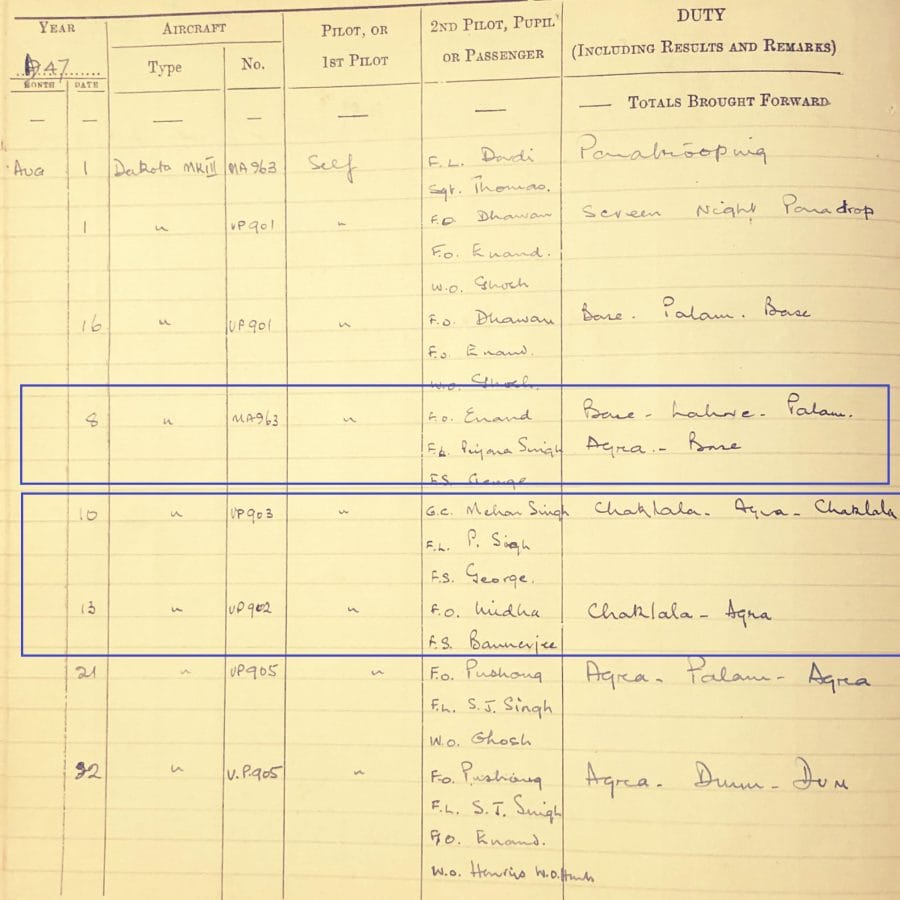 YEAR AIRCRAFT PILOT, OR 2ND PILOT, PUPIL DUTY
1947 Type No. 1ST PILOT OR PASSENGER (INCLUDING RESULTS AND REMARKS)
MONTH DATE
— — — — — — — TOTALS BROUGHT FORWARD
Aug 1 Dakota MKIII MA963 Self F.L. Dardi Paratrooping
Sgt. Thomas.
1 " VP901 " F.O. Dhawan Screen Night Paradrop
F.O. Enand.
W.O. Ghosh
16 " VP901 " F.O. Dhawan Base. Palam. Base
F.O. Enand.
W.O. Ghosh.
8 " MA963 " F.O. Enand Base - Lahore - Palam.
F.L. Piyara Singh Agra. - Base
F.S. George
10 " VP903 " G.C. Mehar Singh Chaklala - Agra - Chaklala
F.L. P. Sigh
F.S. George.
13 " VP902 " F.O. Midha Chaklala - Agra
F.S. Bannerjee
21 " VP905 " F.O. Pushong Agra - Palam - Agra
F.L. S.J. Singh
W.O. Ghosh
22 " V.P.905 " F.O. Pushong Agra - Dum - Dum
F.L. S.J. Singh
F/O. Enand.
W.O. W.O.